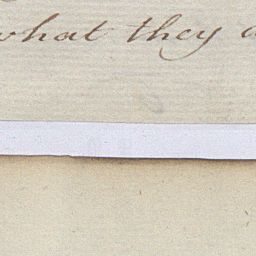 what they